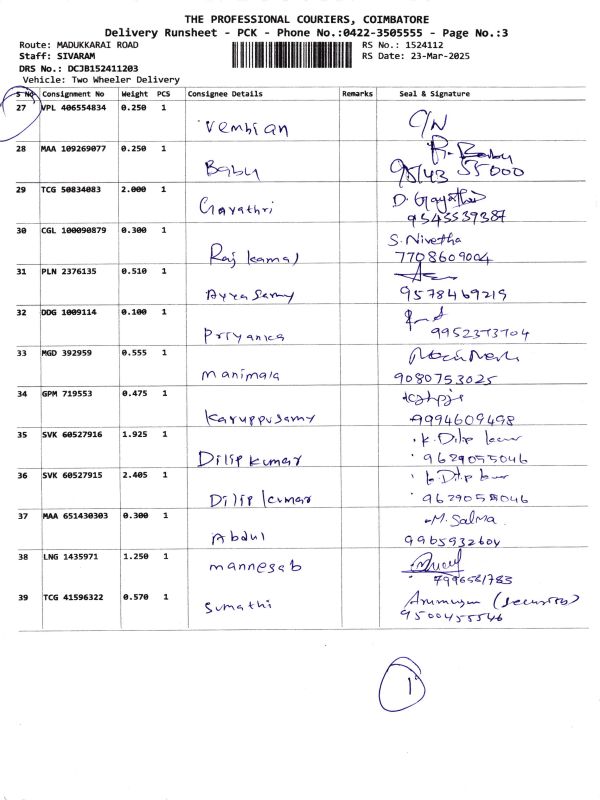 THE PROFESSIONAL COURIERS, COIMBATORE
Delivery Runsheet - PCK - Phone No.:0422-3505555 - Page No.:3
Route: MADUKKARAI ROAD RS No.: 1524112
Staff: SIVARAM RS Date: 23-Mar-2025
DRS No.: DCJB152411203
Vehicle: Two Wheeler Delivery
S No Consignment No Weight PCS Consignee Details Remarks Seal & Signature
27 VPL 406554834 0.250 1 Vembian C/N
28 MAA 109269077 0.250 1 Babu R. Babu
95143 55000
29 TCG 50834083 2.000 1 Gayathri D. Gayathri
9543539387
30 CGL 100090879 0.300 1 Raj kamal S. Nivetha
7708609004
31 PLN 2376135 0.510 1 Ayyasamy
9578469219
32 DDG 1009114 0.100 1 Priyanka
9952373704
33 MGD 392959 0.555 1 manimala
9080753025
34 GPM 719553 0.475 1 Karuppusamy
9994609498
35 SVK 60527916 1.925 1 Dilip kumar K. Dilip kumar
9629055046
36 SVK 60527915 2.405 1 Dilip kumar K. Dilip kumar
9629055046
37 MAA 651430303 0.300 1 Abdul M. Salma
9965932604
38 LNG 1435971 1.250 1 mannesab
7996581783
39 TCG 41596322 0.570 1 Sumathi Arumugam (Security)
9500455546
1